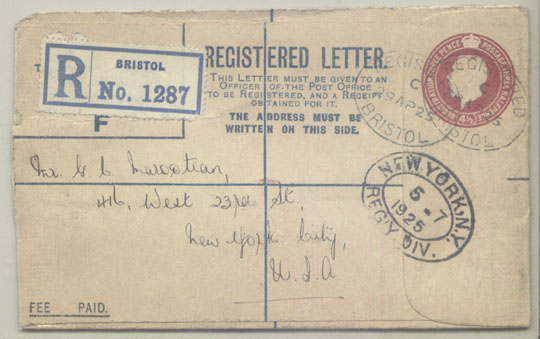 R
BRISTOL
No. 1287
F
REGISTERED LETTER.
THIS LETTER MUST BE GIVEN TO AN
OFFICER OF THE POST OFFICE
TO BE REGISTERED, AND A RECEIPT
OBTAINED FOR IT.
THE ADDRESS MUST BE
WRITTEN ON THIS SIDE.
REGISTERED
AP 25
BRISTOL
REGISTERED
BRISTOL
REGISTRATION THREE PENCE
POSTAGE
4½D
Mr. G C Marootian,
416, West 23rd St,
New York City,
U.S.A
NEW YORK, N.Y.
5-7
1925
REG'Y DIV.
FEE PAID.